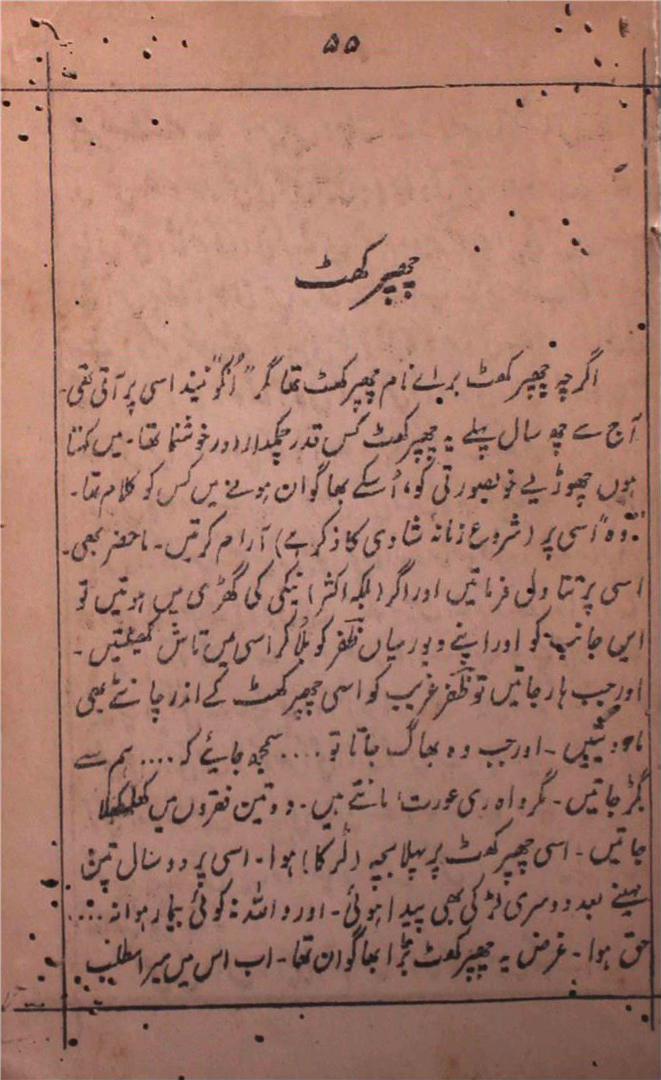 ۵۵
چھپر کھٹ
اگرچہ چھپر کھٹ برائے نام چھپر کھٹ تھا مگر "اُنکو" نیند اسی پر آتی تھی۔
آج سے چھ سال پہلے یہ چھپر کھٹ کس قدر چمکدار اور خوشنما تھا۔ میں کہتا
ہوں چھوڑیے خوبصورتی کو، اُسکے بھاگوان ہونے میں کس کو کلام تھا۔
"وہ" اسی پر (شروع زمانہ شادی کا ذکر ہے) آرام کرتیں۔ ماحضر بھی۔
اسی پر تناول فرماتیں اور اگر (بلکہ اکثر) نیکی کی گھڑی میں ہوتیں تو
ایں جانب کو اور اپنے دیور میاں ظفر کو بلا کر اسی میں تاش کھیلتیں۔
اور جب ہار جاتیں تو ظفر غریب کو اسی چھپر کھٹ کے اندر چانٹے بھی
مار دیتیں۔ اور جب وہ بھاگ جاتا تو .... سمجھ جائیے کہ .... ہم سے
بگڑ جاتیں۔ مگر واہ ری عورت! مانتے ہیں۔ دو تین فقروں میں کھلکھلا
جاتیں۔ اسی چھپر کھٹ پر پہلا بچہ (لڑکا) ہوا۔ اسی پر دو سال تین
مہینے بعد دوسری لڑکی بھی پیدا ہوئی۔ اور واللہ نہ کوئی بیمار ہوا نہ ....
حق ہوا۔ غرض یہ چھپر کھٹ بڑا بھاگوان تھا۔ اب اس میں میرا مطلب